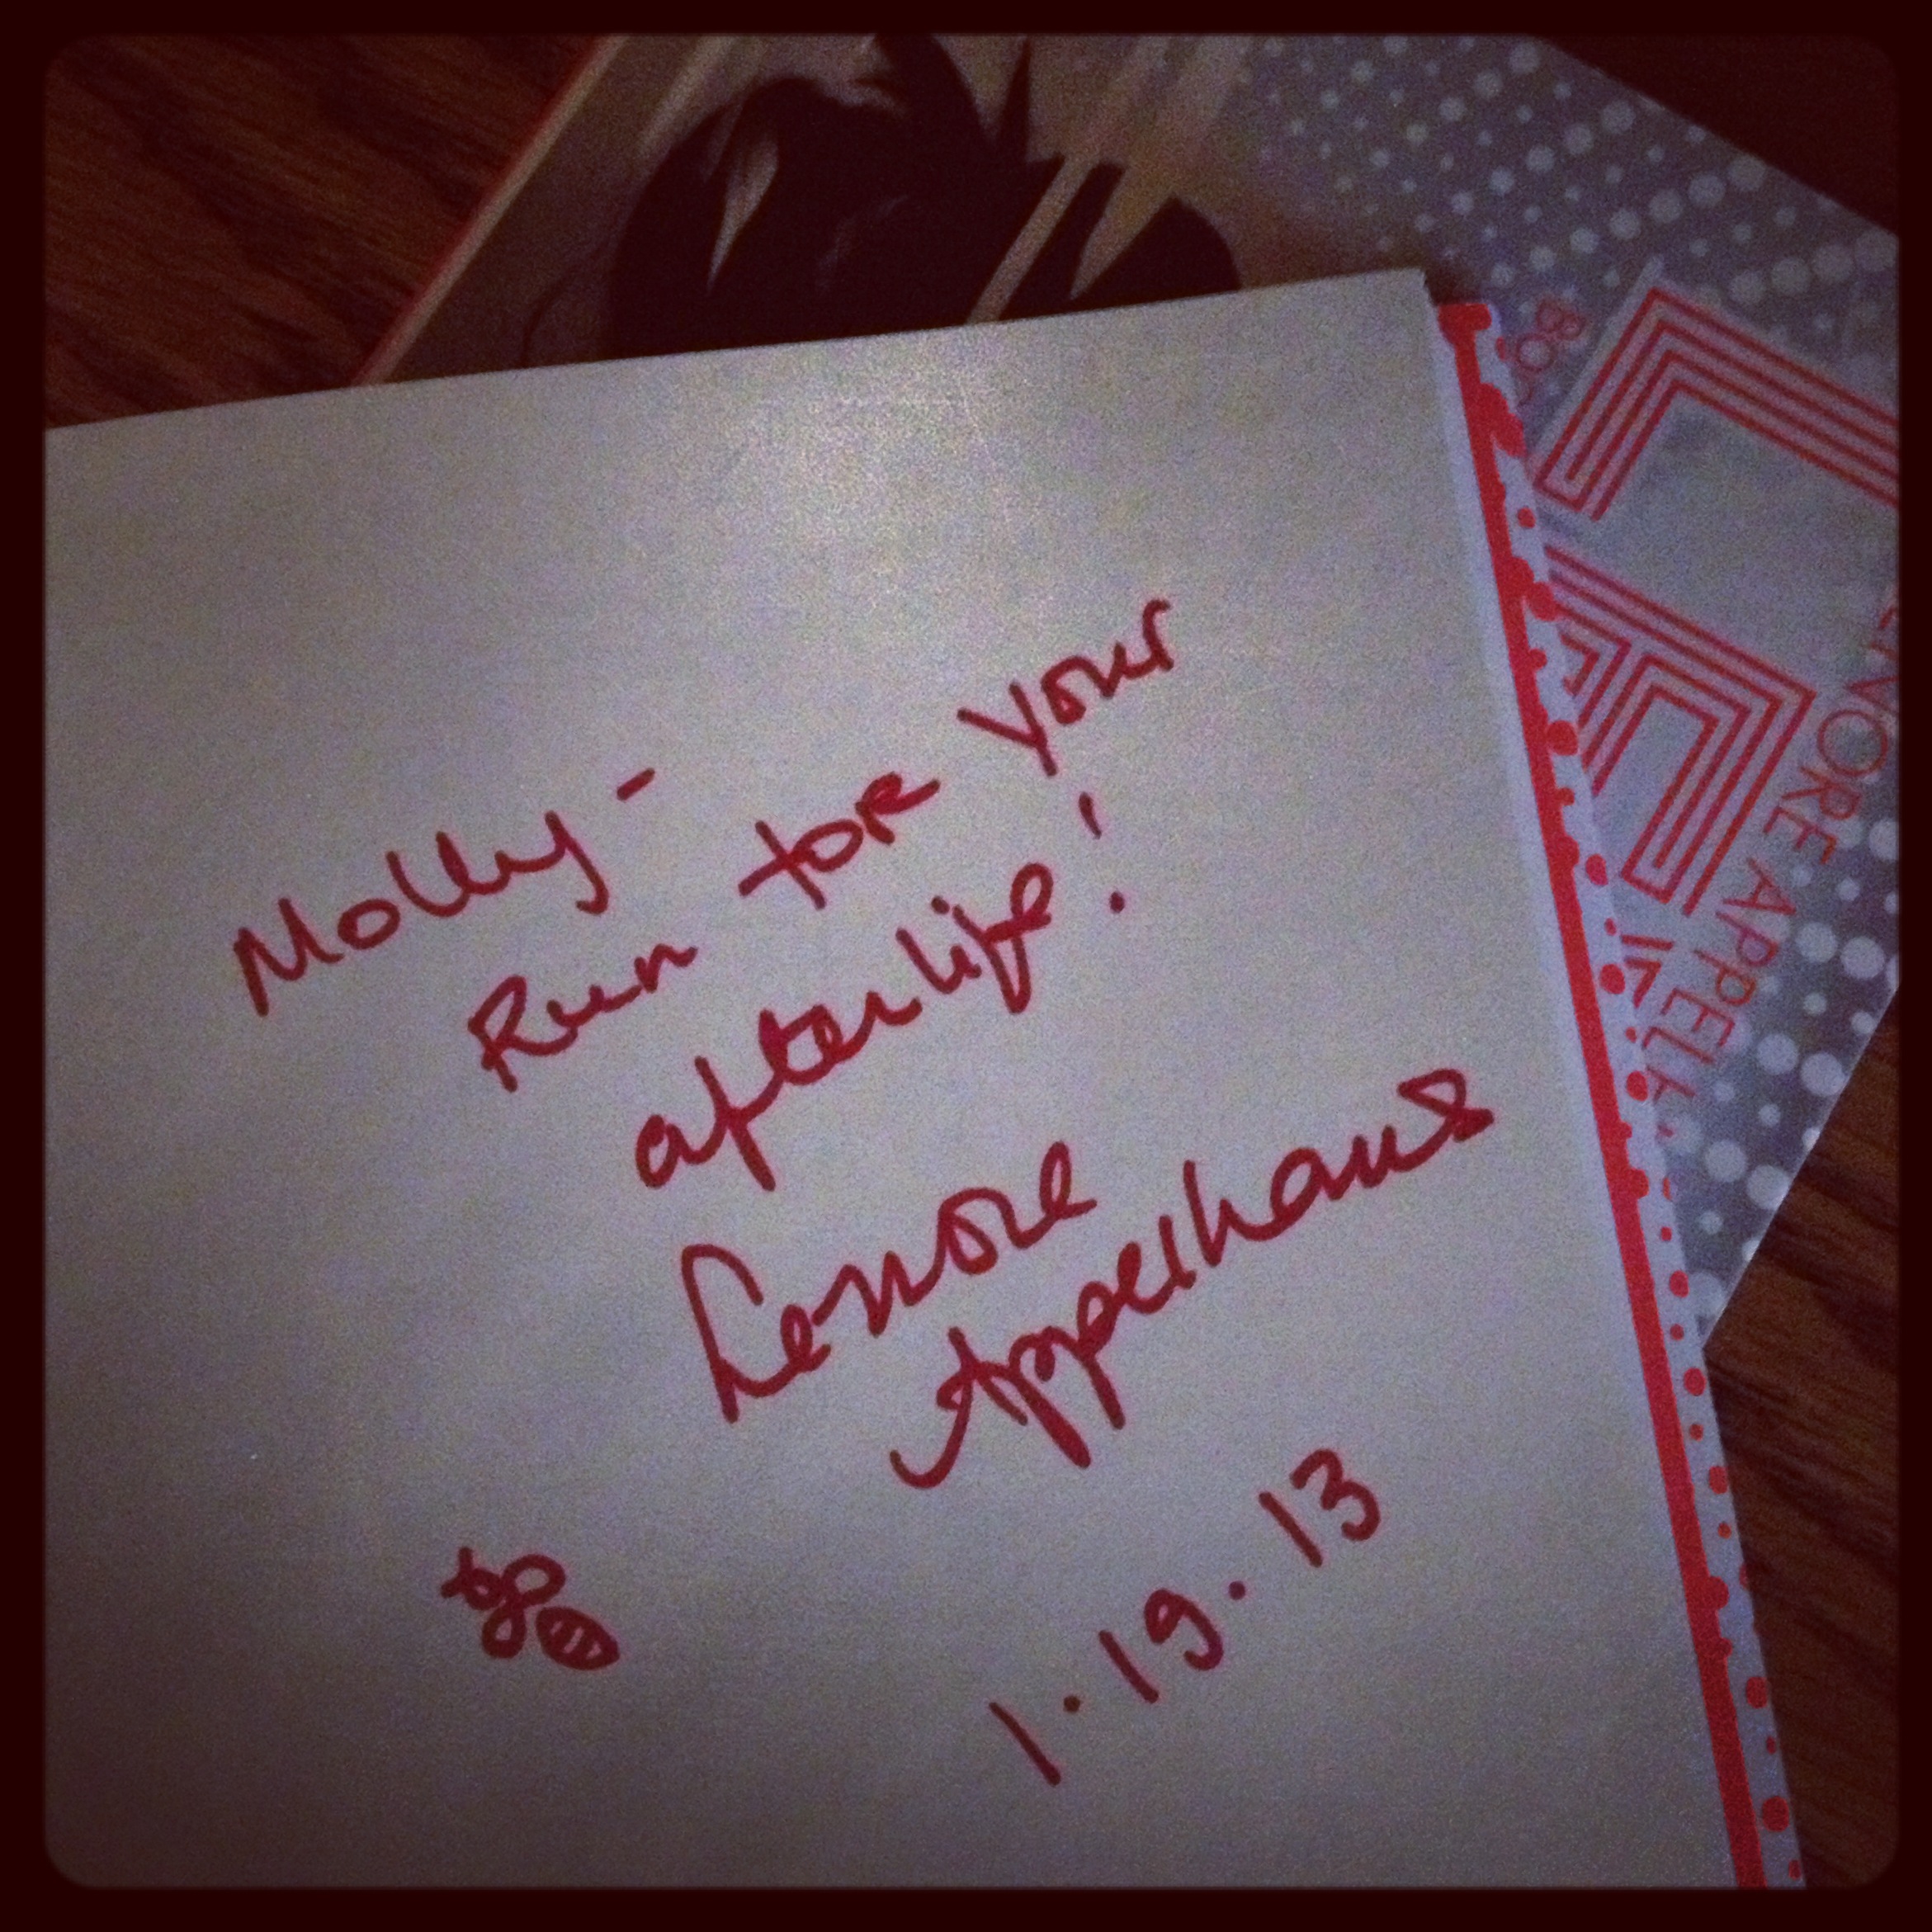 Molly -
Run for your
afterlife!
Lenore
Appelhans
1.19.13
LENORE APPELH
BO